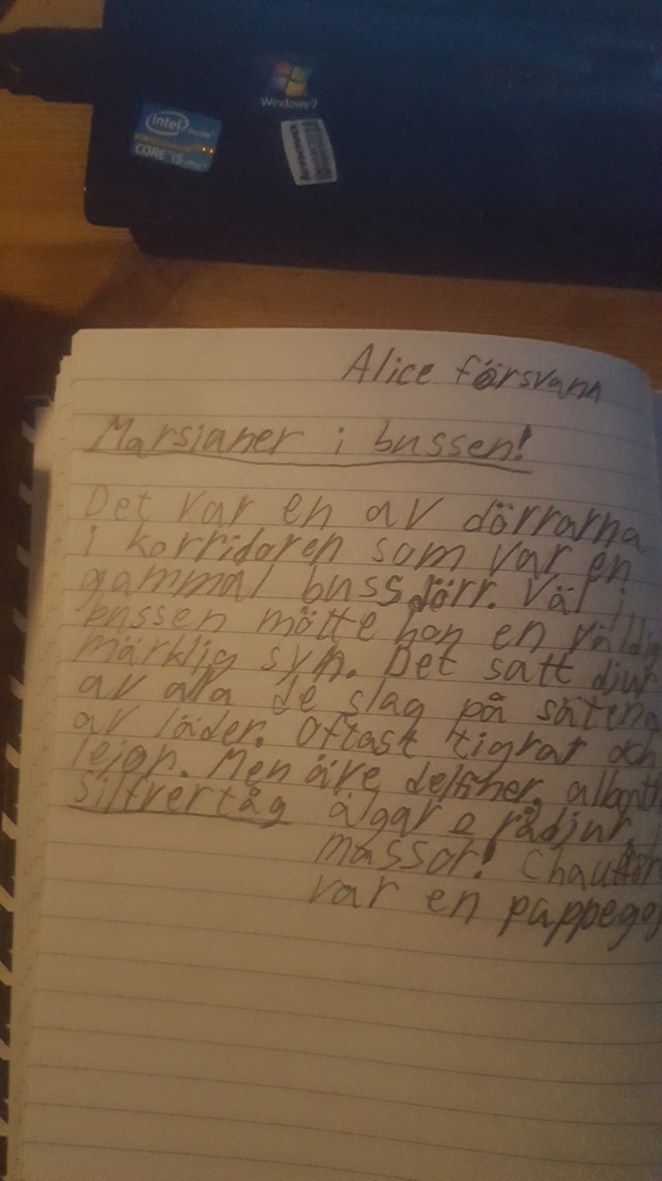 intel
CORE i5
Windows 7
Alice försvann
Marsianer i bussen!
Det var en av dörrarna
i korridoren som var en
gammal buss dörr. Väl i
bussen mötte hon en väldig
märklig syn. Det satt djur
av alla de slag på sätena
av läder. Oftast tigrar och
lejon. Men äve delfiner,
silfvertåg älgar o rådjur,
massor! Chaufför
var en pappego